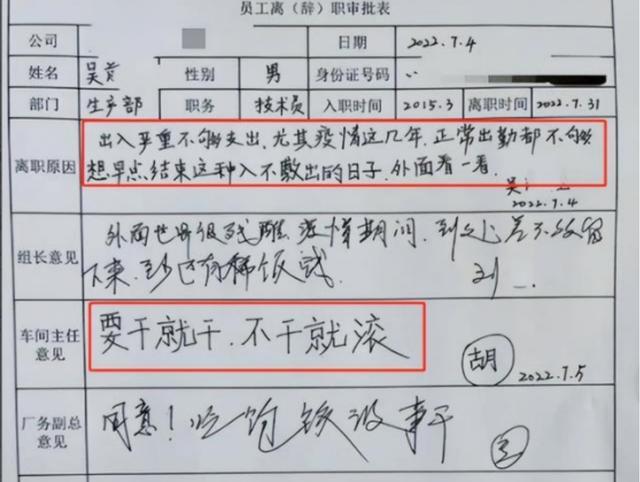 员工离（辞）职审批表
公司 日期 2022.7.4
姓名 吴 性别 男 身份证号码
部门 生产部 职务 技术员 入职时间 2015.3 离职时间 2022.7.31
出入严重不够支出，尤其疫情这几年，正常出勤都不够
离职原因 想早点结束这种入不敷出的日子，外面看一看.
吴
2022.7.4
外面世界很残酷，疫情期间，到处差不多
组长意见 下来，至少还有稀饭钱
刘
车间主任意见 要干就干，不干就滚
胡
2022.7.5
厂务副总意见 同意！吃饱饭没事干